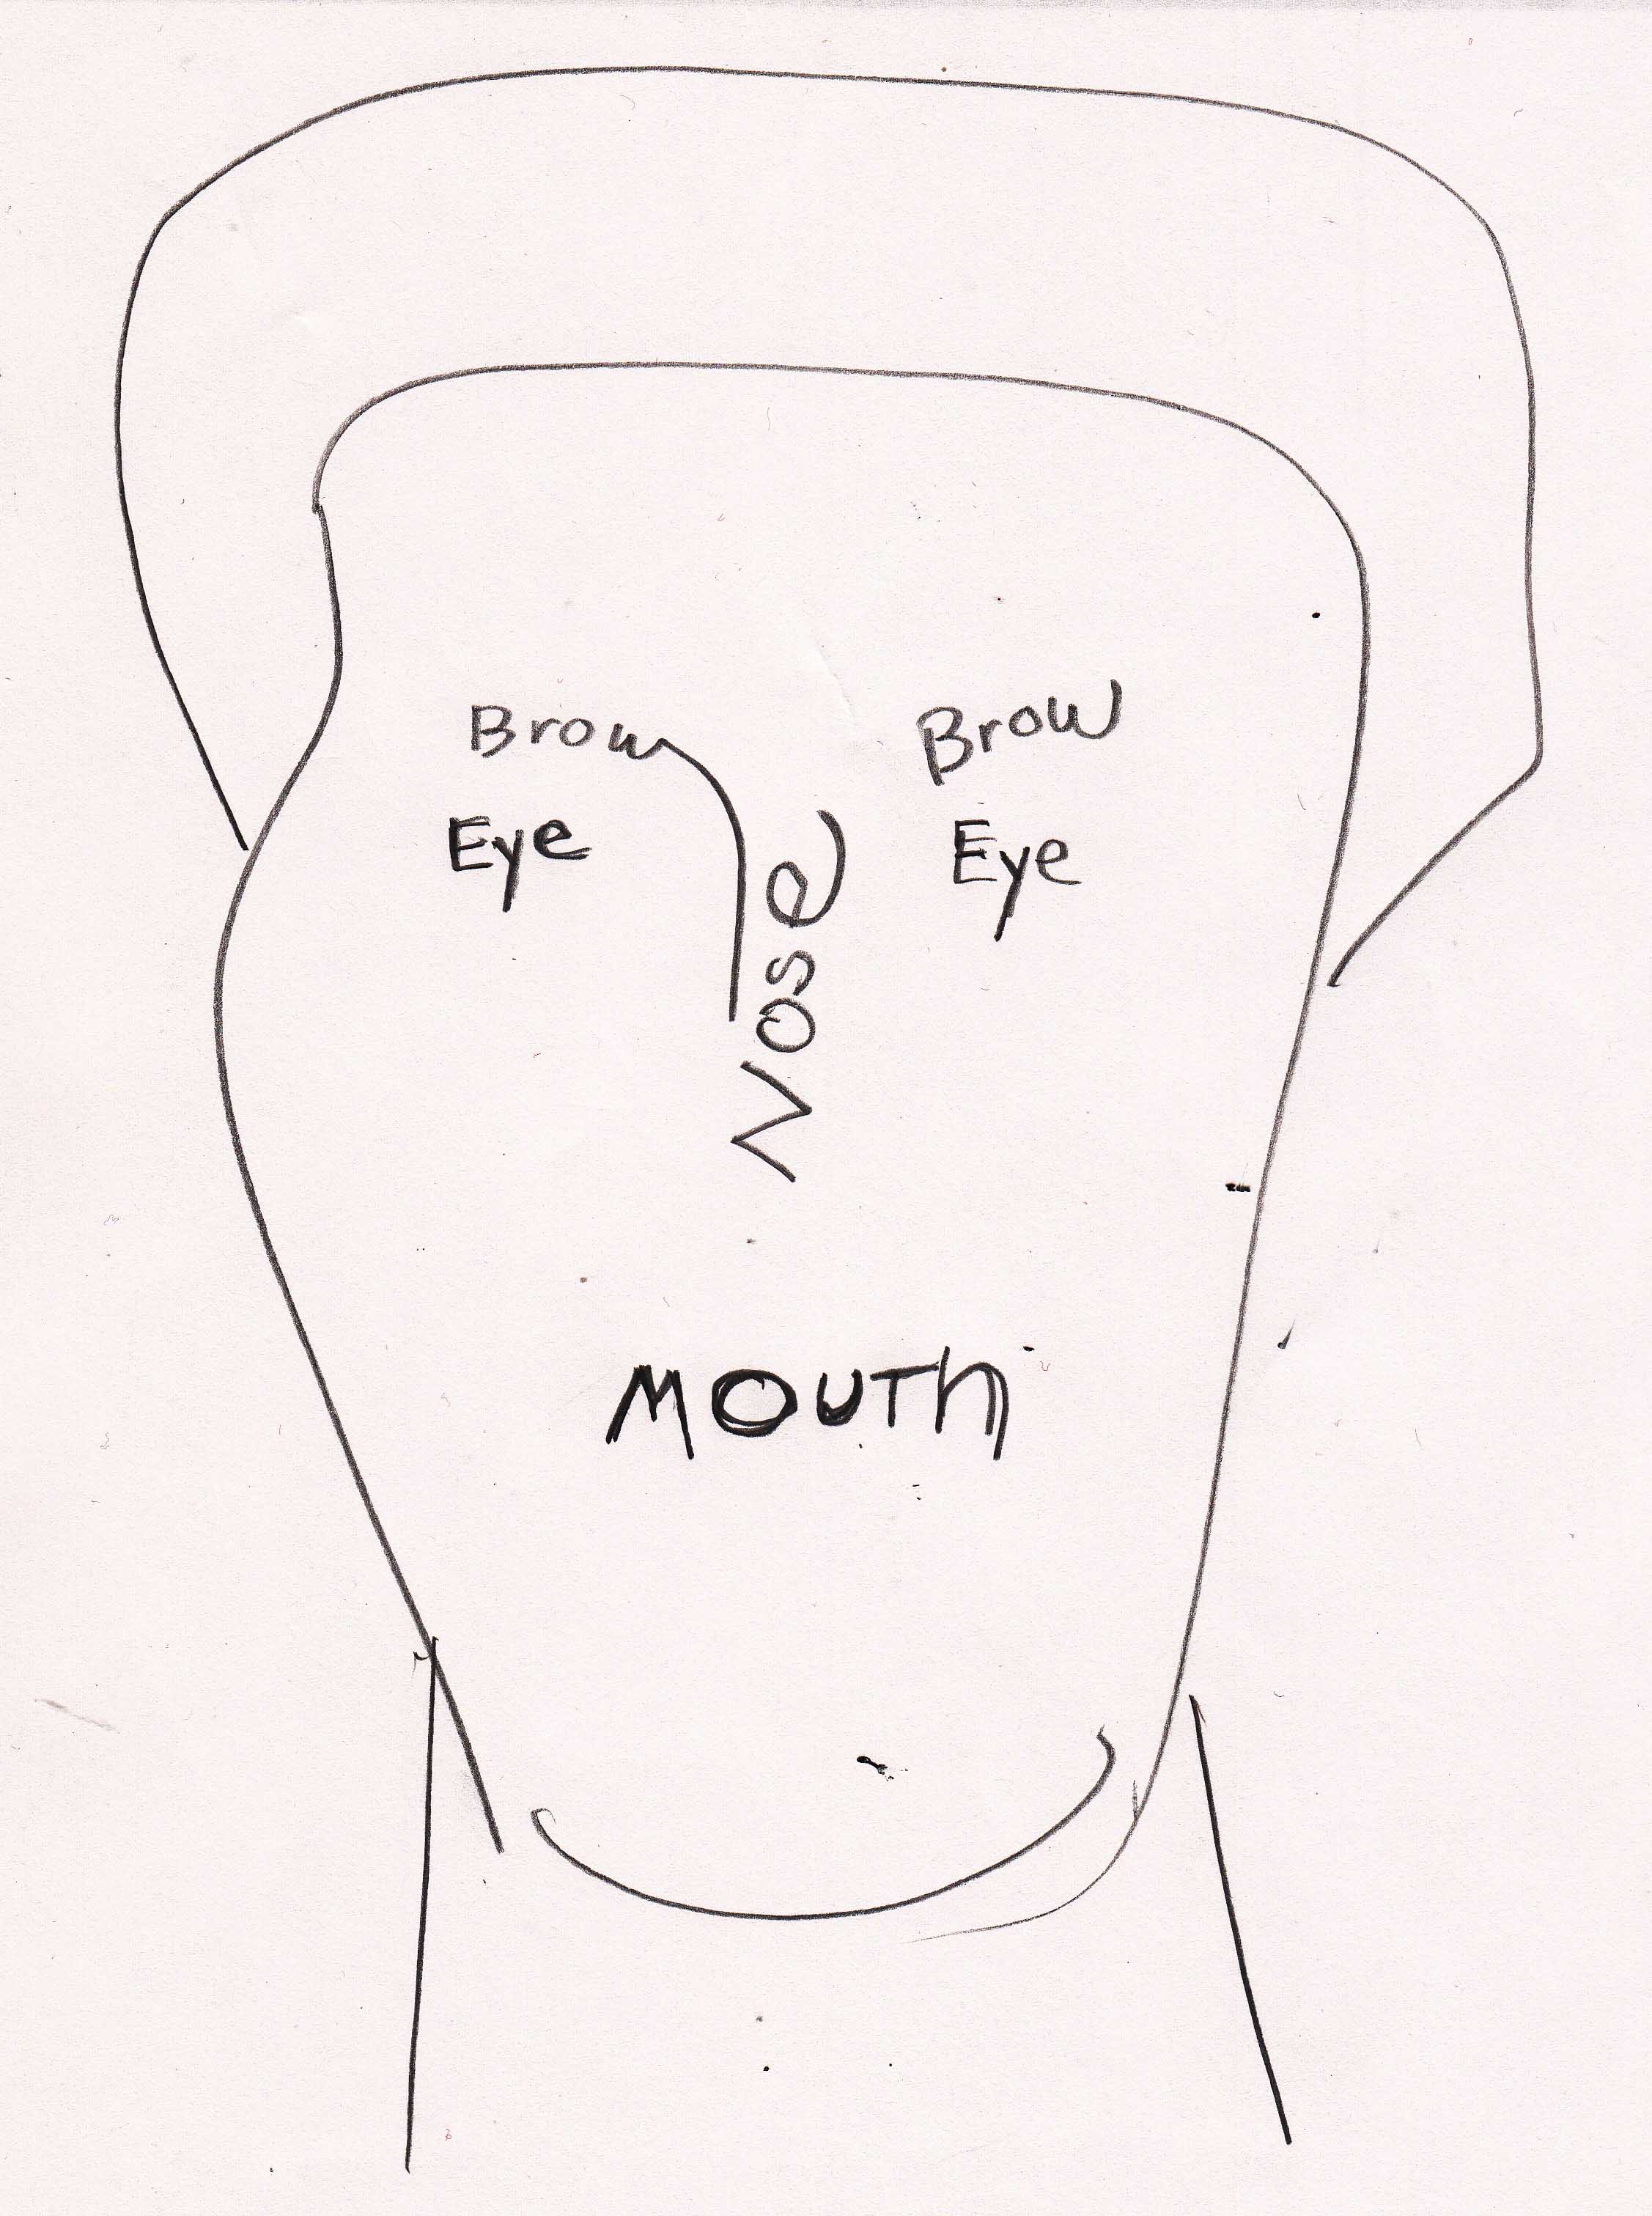 Brow Brow
Eye Eye
Nose
MOUTh